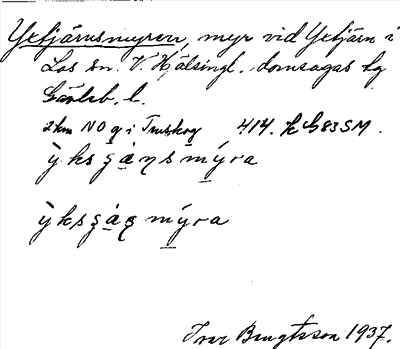 Yxtjärnsmyren, myr vid Yxtjärn i
Los sn. V. Hälsingl. domsagas tg
Gävleb. l.
2 km NO g i Tenskog 414. K G 83 SM.
ỳksʂàɳsmýra
ỳksʂàʂmýra
Ivar Bengtsson 1937.